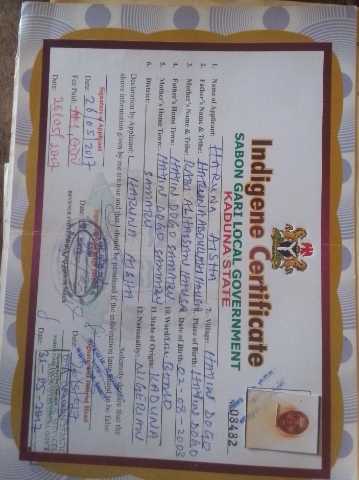 Indigene Certificate
SABON GARI LOCAL GOVERNMENT
KADUNA STATE
08482
1. Name of Applicant: HARUNA AISHA
7. Village: HAYIN DOGO
2. Father's Name & Tribe: HARUNA ABDULLAHI HAUSA
8. Place of Birth: HAYIN DOGO
3. Mother's Name & Tribe: RABI ALHASSAN HAUSA
9. Date of Birth: 02-03-2003
4. Father's Home Town: HAYIN DOGO SAMARU
10. Ward/LGA: BOMO
5. Mother's Home Town: HAYIN DOGO SAMARU
11. State of Origin: KADUNA
6. District: SAMARU
12. Nationality: NIGERIAN
Declaration by Applicant: I HARUNA AISHA Solemnly declare that the
above information given by me are true and that I should be punished if the information is found to be false
Signature of Applicant
Date: 26/05/2017
Fee Paid:
Date: 26/05/2017
Date:
Date: 31-05-2017